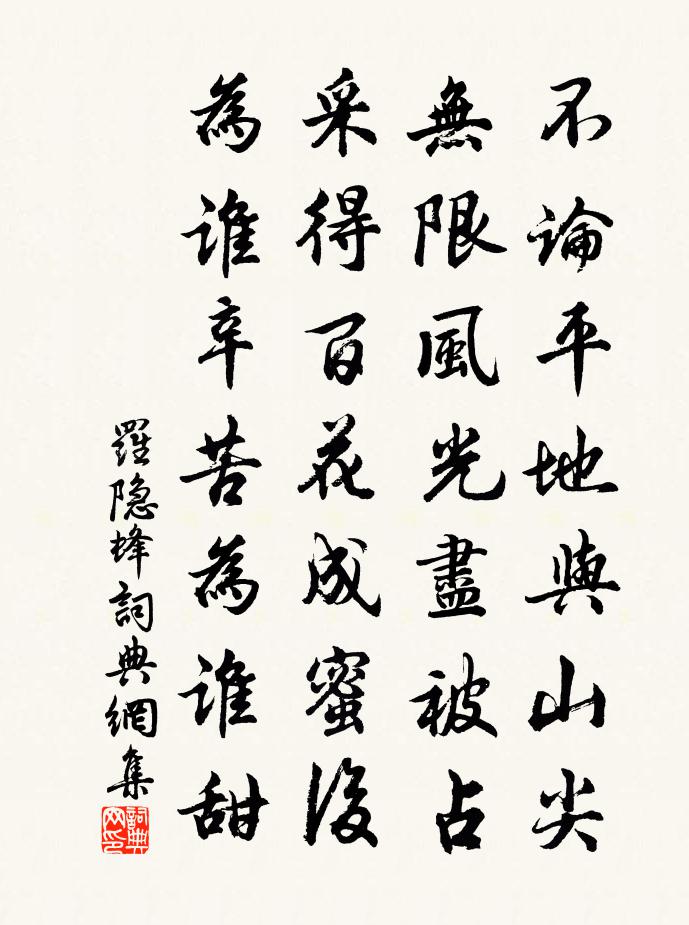 不論平地與山尖
無限風光盡被占
采得百花成蜜後
為誰辛苦為誰甜
羅隐蜂詞典網集
詞典网印